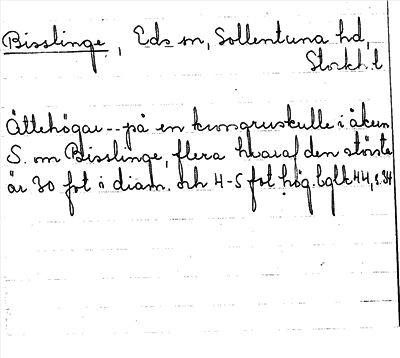 Bisslinge, Eds sn, Sollentuna hd,
Stockh. l
Ättehögar -- på en krosgruskulle i åkern
S. om Bisslinge, flera hvaraf den största
är 30 fot i diam. och 4-5 fot hög. bglk 44, s. 34